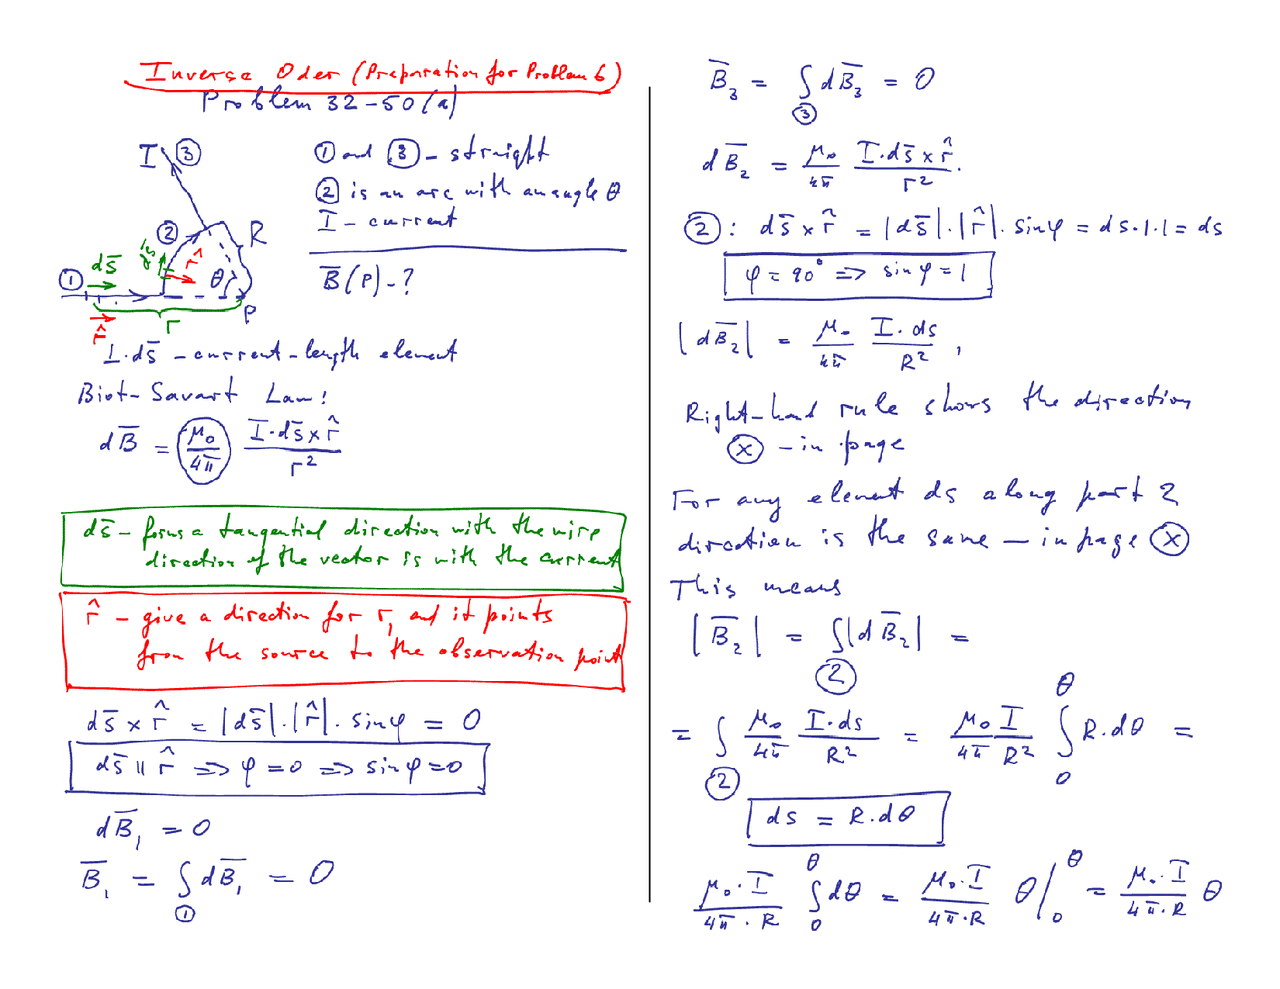 Inverse Oder (Preparation for Problem 6)
Problem 32-50(a)
I ③
② R
ds⃗ ds⃗ r̂ θ
① P
r̂ r
① and ③ - straight
② is an arc with an angle θ
I - current
B̅(P) - ?
I·ds̅ - current-length element
Biot-Savart Law:
dB̅ = μ₀/4π I·ds̅ × r̂ / r²
ds̅ - forms a tangential direction with the wire
direction of the vector is with the current
r̂ - give a direction for r, and it points
from the source to the observation point
ds̅ × r̂ = |ds̅|·|r̂|·sinφ = 0
ds̅ ∥ r̂ => φ = 0 => sinφ = 0
dB̅₁ = 0
B̅₁ = ∫① dB̅₁ = 0
B̅₃ = ∫③ dB̅₃ = 0
dB̅₂ = μ₀/4π I·ds̅ × r̂ / r².
②: ds̅ × r̂ = |ds̅|·|r̂|·sinφ = ds·1·1 = ds
φ = 90° => sinφ = 1
|dB̅₂| = μ₀/4π I·ds/R²,
Right-hand rule shows the direction
ⓧ - in page
For any element ds along part 2
direction is the same - in page ⓧ
This means
|B̅₂| = ∫② |dB̅₂| =
= ∫② μ₀/4π I·ds/R² = μ₀/4π I/R² ∫₀^θ R·dθ =
ds = R·dθ
μ₀·I/4π·R ∫₀^θ dθ = μ₀·I/4π·R θ/₀^θ = μ₀·I/4π·R θ